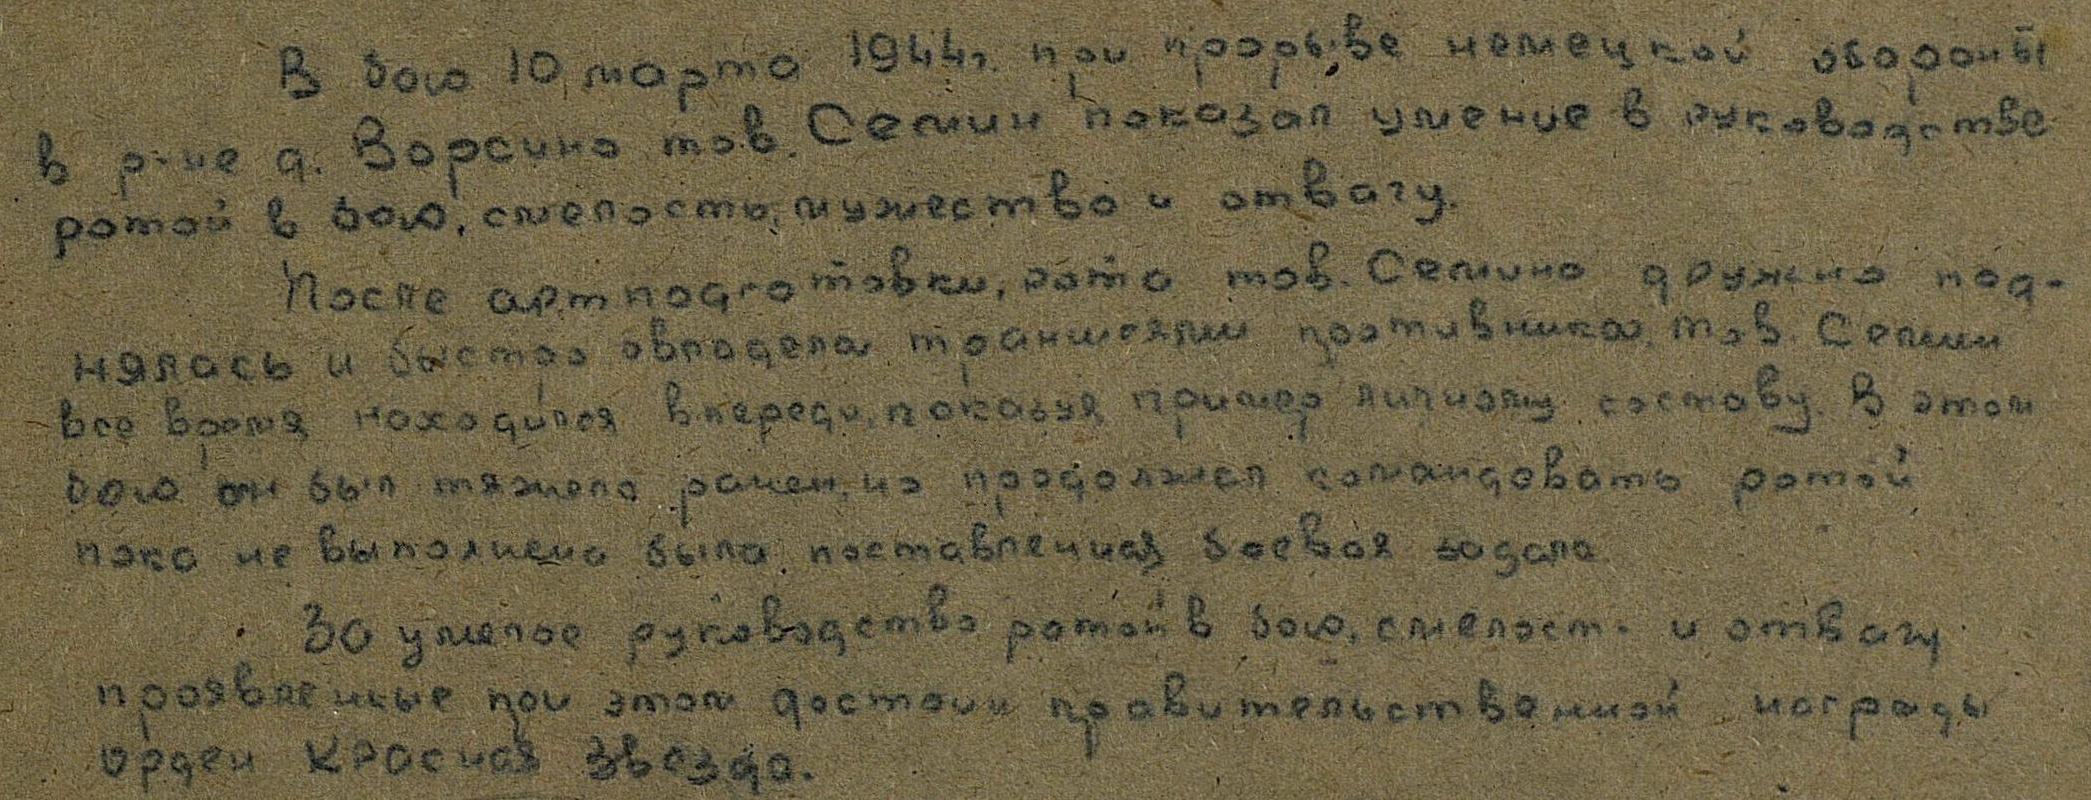 В бою 10 марта 1944г. при прорыве немецкой обороны
в р-не д. Ворсино тов. Семин показал умение в руководстве
ротой в бою, смелость, мужество и отвагу.
После артподготовки, рота тов. Семина дружно под-
нялась и быстро овладела траншеями противника, тов. Семин
все время находился впереди, показуя пример личному составу. В этом
бою он был тяжело ранен, но продолжал командовать ротой
пока не выполнена была поставленная боевая задача
За умелое руководство ротой в бою, смелость и отвагу
проявленные при этом достоин правительственной награды
орден Красная Звезда.